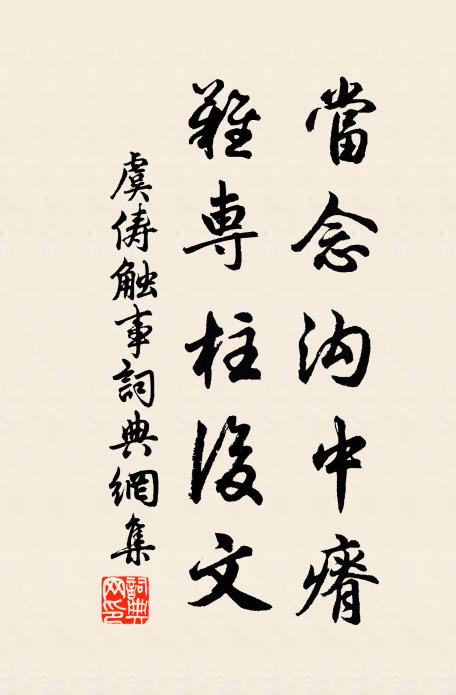 當念沟中瘠
難專柱後文
虞俦触事詞典網集
詞典网印